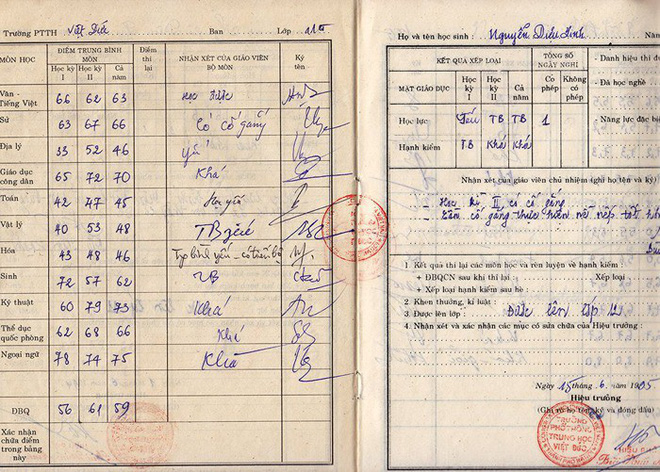 Trường PTTH Việt Đức Ban Lớp 11
MÔN HỌC ĐIỂM TRUNG BÌNH MÔN Điểm thi lại NHẬN XÉT CỦA GIÁO VIÊN BỘ MÔN Ký tên
Học kỳ I Học kỳ II Cả năm
Văn - Tiếng Việt 66 62 63 Học được
Sử 63 67 66 Có cố gắng
Địa lý 33 52 46 yếu
Giáo dục công dân 65 72 70 Khá
Toán 42 47 45 Học yếu
Vật lý 40 53 48 TB yếu
Hóa 43 48 46 yếu - có tiến bộ
Sinh 72 57 62 TB
Kỹ thuật 60 79 73 Khá
Thể dục quốc phòng 62 68 66 Khá
Ngoại ngữ 78 74 75 Khá
ĐBQ 56 61 59
Xác nhận chữa điểm trong bảng này
Họ và tên học sinh : Nguyễn Diệu Linh Nă
KẾT QUẢ XẾP LOẠI TỔNG SỐ NGÀY NGHỈ
MẶT GIÁO DỤC Học kỳ I Học kỳ II Cả năm Có phép Không có phép
Học lực Yếu TB TB 1
Hạnh kiểm TB Khá Khá
- Danh hiệu thi đu
- Đã học nghề
- Năng lực đặc biệ
Nhận xét của giáo viên chủ nhiệm (ghi họ tên và ký)
- Học kỳ II có cố gắng
- cố gắng thực hiện nề nếp tốt
1. Kết quả thi lại các môn học và rèn luyện về hạnh kiểm
+ ĐBQCN sau khi thi lại : Xếp loại
+ Xếp loại hạnh kiểm sau hè :
2. Khen thưởng, kỉ luật :
3. Được lên lớp : Được lên lớp 12
4. Nhận xét và xác nhận các mục có sửa chữa của Hiệu trưởng :
Ngày 15 tháng 6 năm 1995
Hiệu trưởng
(Ghi rõ họ tên, ký và đóng dấu)
TRƯỜNG
PHỔ THÔNG
TRUNG HỌC
VIỆT ĐỨC